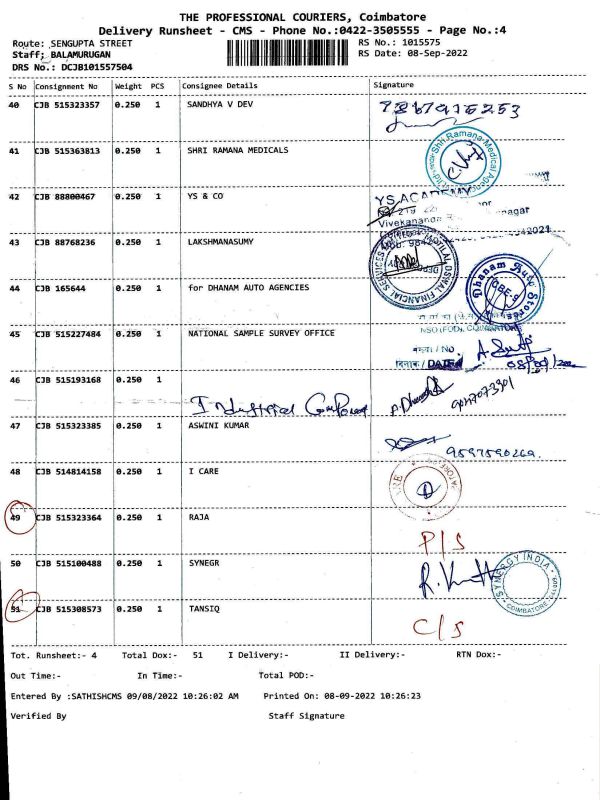 THE PROFESSIONAL COURIERS, Coimbatore
Delivery Runsheet - CMS - Phone No.:0422-3505555 - Page No.:4
Route: SENGUPTA STREET RS No.: 1015575
Staff: BALAMURUGAN RS Date: 08-Sep-2022
DRS No.: DCJB101557504
S No Consignment No Weight PCS Consignee Details Signature
40 CJB 515323357 0.250 1 SANDHYA V DEV
41 CJB 515363813 0.250 1 SHRI RAMANA MEDICALS
Shri Ramana Medical
42 CJB 88800467 0.250 1 YS & CO YS ACADEMY
Vivekananda
43 CJB 88768236 0.250 1 LAKSHMANASUMY
MOTILAL OSWAL FINANCIAL SERVICES
44 CJB 165644 0.250 1 for DHANAM AUTO AGENCIES
Dhanam Auto Stores
CBE-9
NSO (FOD), COIMBATORE
45 CJB 515227484 0.250 1 NATIONAL SAMPLE SURVEY OFFICE
/ NO
दिनांक / DATE
46 CJB 515193168 0.250 1
I Industrial Component
47 CJB 515323385 0.250 1 ASWINI KUMAR
9597590269.
48 CJB 514814158 0.250 1 I CARE
49 CJB 515323364 0.250 1 RAJA
P/S
50 CJB 515100488 0.250 1 SYNEGR
SYNERGY INDIA
COIMBATORE
51 CJB 515308573 0.250 1 TANSIQ
C/S
Tot. Runsheet:- 4 Total Dox:- 51 I Delivery:- II Delivery:- RTN Dox:-
Out Time:- In Time:- Total POD:-
Entered By :SATHISHCMS 09/08/2022 10:26:02 AM Printed On: 08-09-2022 10:26:23
Verified By Staff Signature